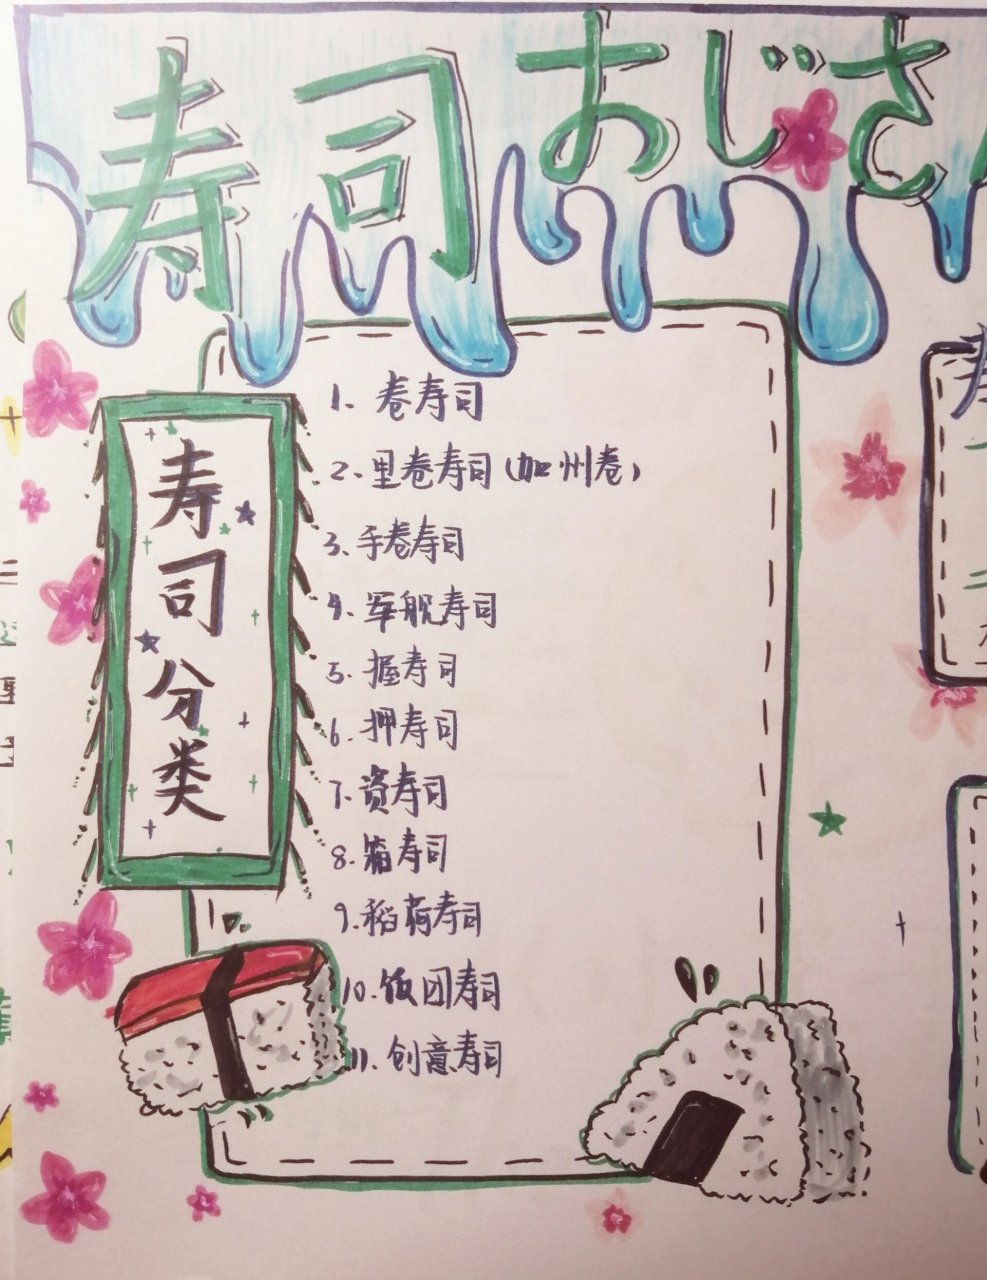 寿司おじさ
寿司分类
1、卷寿司
2、里卷寿司(加州卷)
3、手卷寿司
4、军舰寿司
5、握寿司
6、押寿司
7、资寿司
8、箱寿司
9、稻荷寿司
10、饭团寿司
11、创意寿司